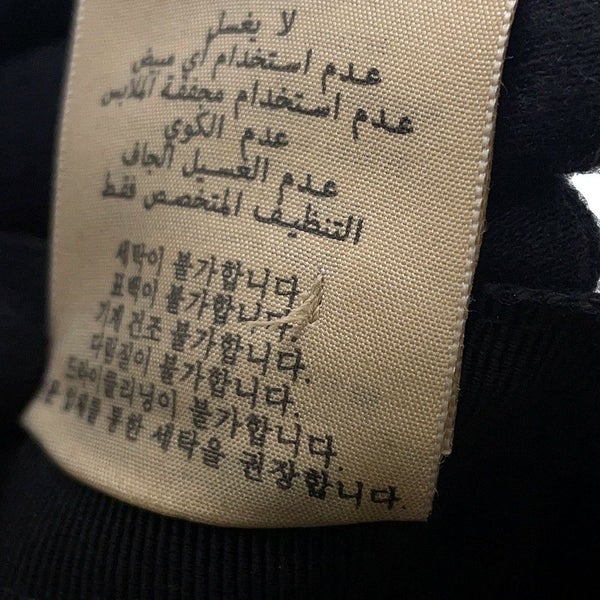 لا يغسل
عدم استخدام أي مبيض
عدم استخدام مجففة الملابس
عدم الكوي
عدم الغسيل الجاف
التنظيف المتخصص فقط
세탁이 불가합니다.
표백이 불가합니다.
기계 건조 불가합니다.
다림질이 불가합니다.
드라이클리닝이 불가합니다.
업체를 통한 세탁을 권장합니다.